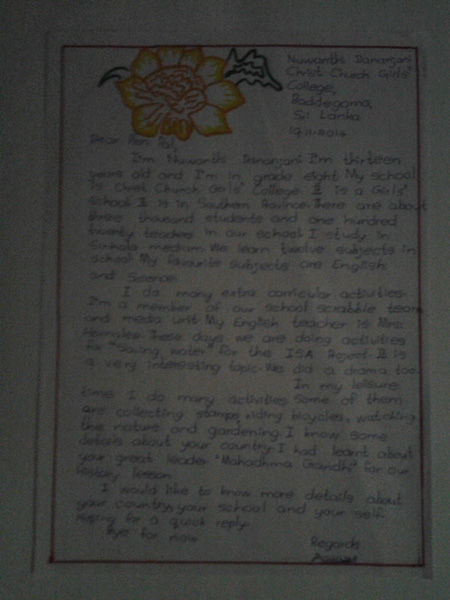 Nuwanthi Dananjani
Christ Church Girls'
College,
Baddegama,
Sri Lanka
19.11.2014
Dear Pen Pal,
I'm Nuwanthi Dananjani. I'm thirteen
years old and I'm in grade eight. My school
is Christ Church Girls' College. It is a Girls'
school. It is in Southern Province. There are about
three thousand students and one hundred
twenty teachers in our school. I study in
Sinhala medium. We learn twelve subjects in
school. My favourite subjects are English
and Science.
I do many extra curricular activities.
I'm a member of our school scrabble team
and media unit. My English teacher is Mrs.
These days we are doing activities
for "Saving water" for the ISA Project. It is
a very interesting topic. We did a drama too.
In my leisure
time I do many activities. Some of them
are collecting stamps, riding bicycles, watching
the nature and gardening. I know some
details about your country. I had learnt about
your great leader "Mahathma Grandhi" for our
history lesson.
I would like to know more details about
your country, your school and your self.
Hoping for a quick reply.
Bye for now.
Regards